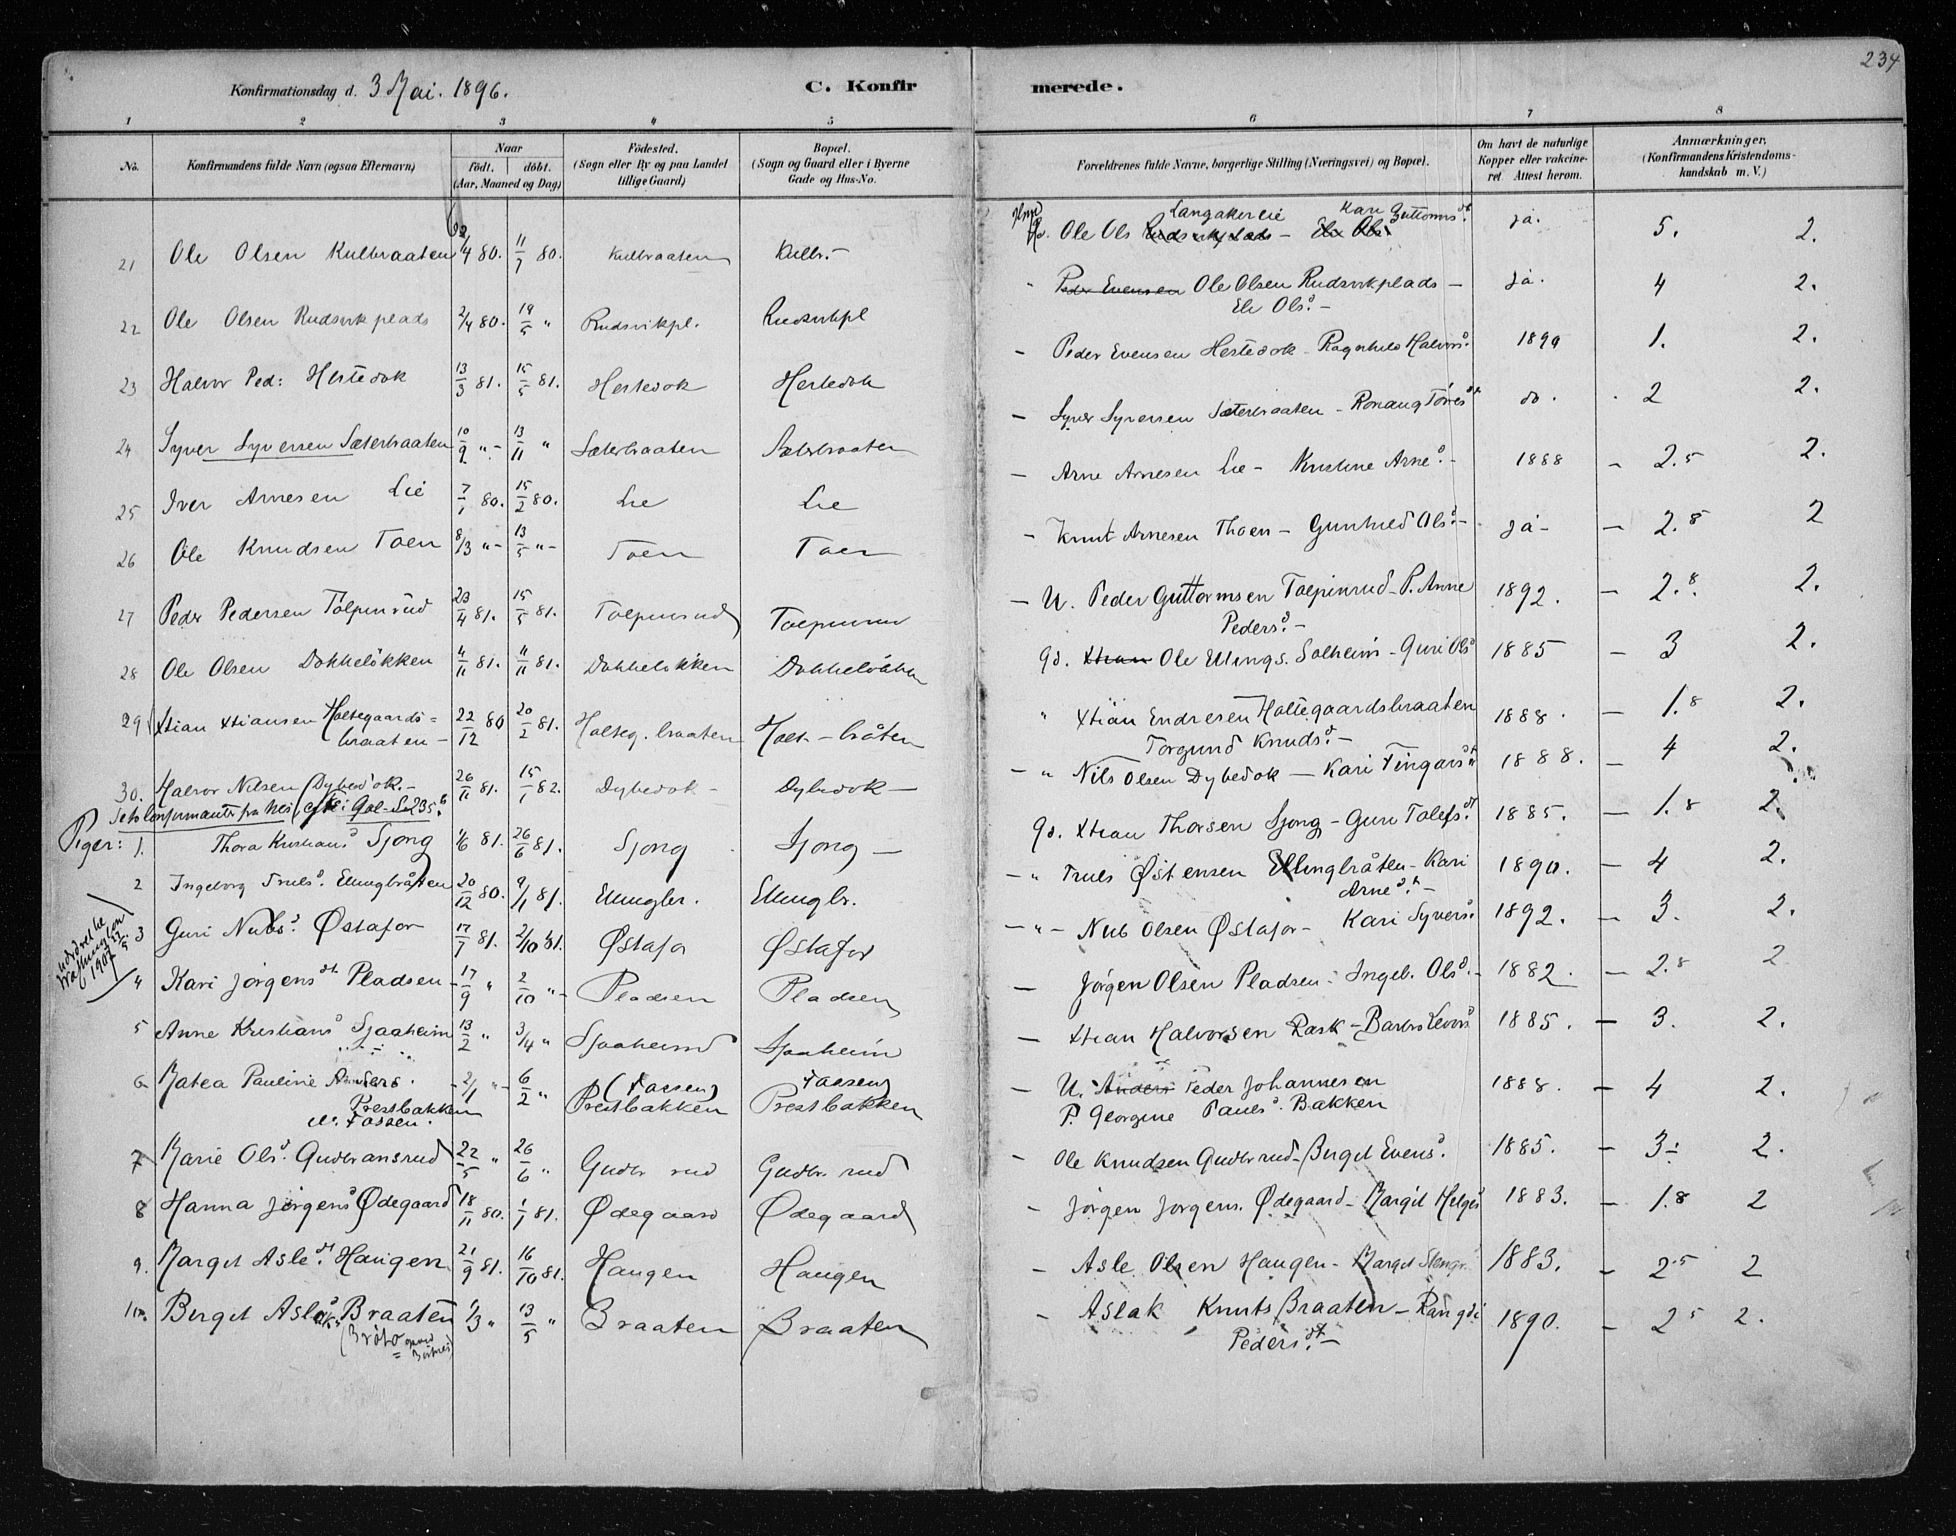 234
Konfirmationsdag d. 3 Mai. 1896. C. Konfirmerede.
1 2 3 4 5 6 7 8
No. Konfirmandens fulde Navn (ogsaa Efternavn) Naar født. døbt. (Aar, Maaned og Dag) Födested. (Sogn eller By og paa Landet tillige Gaard) Bopæl. (Sogn og Gaard eller i Byerne Gade og Hus-No. Forældrenes fulde Navne, borgerlige Stilling (Næringsvei) og Bopæl. Om havt de naturlige Kopper eller vakcineret Attest herom. Anmærkninger, (Konfirmandens Kristendomskundskab m. V.)
Langaker eie Kari Guttorms dt.
21 Ole Olsen Kulbraaten 4 80. 11/7 80. Kulbraaten Kulbr.- Ole Ols Rudsvikplads - Eli Ols ja. 5. 2.
22 Ole Olsen Rudsvikplads 2/4 80. 19/5 " Rudsvikpl. Rudsvikpl " Peder Evensen Ole Olsen Rudsvikplads - ja. 4 2.
Eli Ols d. -
23 Halvor Ped: Hestedok 13/3 81. 15/5 81. Hestedok Hestedok - Peder Evensen Hestedok - Ragnhild Halvors d. 1890 1. 2.
24 Syver Syversen Sæterbraaten 10/9 " - 13/11 " Sæterbraaten Sæterbraaten - Syver Syversen Sæterbraaten - Ronaug Tores dt do. 2 2.
25 Iver Arnesen Lie 7/1 80. 15/2 80. Lie Lie - Arne Arnesen Lie - Kristine Arne d. - 1888 - 2.5 2.
26 Ole Knudsen Toen 8/3 " - 13/5 " - Toen Toen - Knut Arnesen Thoen - Gunhild Ols d. - ja - - 2.8 2
27 Peder Pedersen Tolpinrud 23/4 81. 15/5 81. Tolpinrud Tolpinrud - U. Peder Guttormsen Tolpinrud - P. Anne 1892. - 2.8. 2.
Peders d. -
28 Ole Olsen Dokkeløkken 4/11 81. 11/11 81. Dokkeløkken Dokkeløkken Gd. Xtian Ole Ellings. Solheim - Guri Ols d 1885 - 3 2.
29 Xtian Xtiansen Holtegaards=braaten - 22/12 80 20/2 81. Holteg. braaten Holt - bråten " Xtian Endresen Holtegaardsbraaten 1888. - 1.8 2.
Torgund Knuds d. -
30. Halvor Nilsen Dybedok. - 26/11 81. 15/1 82. Dybedok - Dybedok - - " Nils Olsen Dybedok - Kari Fingars dt 1888. - 4 2.
Piger: 1. Thora Kristians d Sjong 1/6 81. 26/6 81. Sjong Sjong - Gd. Xtian Thorsen Sjong - Guri Tolefs dt. 1885. - 1.8 2.
2 Ingeborg Truls d. Ellingbråten 20/12 80. 9/1 81. Ellingbr. Ellingbr. - " Truls Østensen Ellingbråten - Kari 1890. - 4 2.
Arne d.t -
3 Guri Nubs d Østafor 17/7 81. 2/10 81. Østafor Østafor - " - Nub Olsen Østafor - Kari Syvers d. 1892. - 3. 2.
4 Kari Jørgens dt. Pladsen - 17/9 " 2/10 " - Pladsen Pladsen - Jørgen Olsen Pladsen - Ingeb. Ols d. - 1882. - 2.8 2
5 Anne Kristians d Sjaaheim 13/2 " 3/4 " Sjaaheim Sjaaheim - Xtian Halvorsen Rask - Barbro Levors d 1885. - 3. 2.
6 Matea Pauline Anders. - 2/1 " - 6/2 " (Fossen) Prestbakken Fossen) Prestbakken - U. Anders Peder Johannesen 1888. - 4 2.
Prestbakken P. Georgine Pauls d. Bakken
Fossen.
7 Marie Ols d. Gudbransrud 22/5 " 26/6 " Gudbr rud Gudbr. rud - Ole Knudsen Gudbr rud - Birgit Evens d. 1885. - 3 2.
8 Hanna Jørgens d Ødegaard 18/11 80. 1/1 81. Ødegaard Ødegaard - Jørgen Jørgens. Ødegaard - Margit Helges d 1883. - 1.8 2
9. Margit Asle dt. Haugen 21/9 81. 16/10 81. Haugen Haugen - Asle Olsen Haugen - Margit 1883. - 2.5 2
10. Birgit Aslaks d Braaten 1/3 " 13/5 " Braaten Braaten - Aslak Knuts Braaten - Rangdi 1890. - 2 5 2.
Peders dt. -